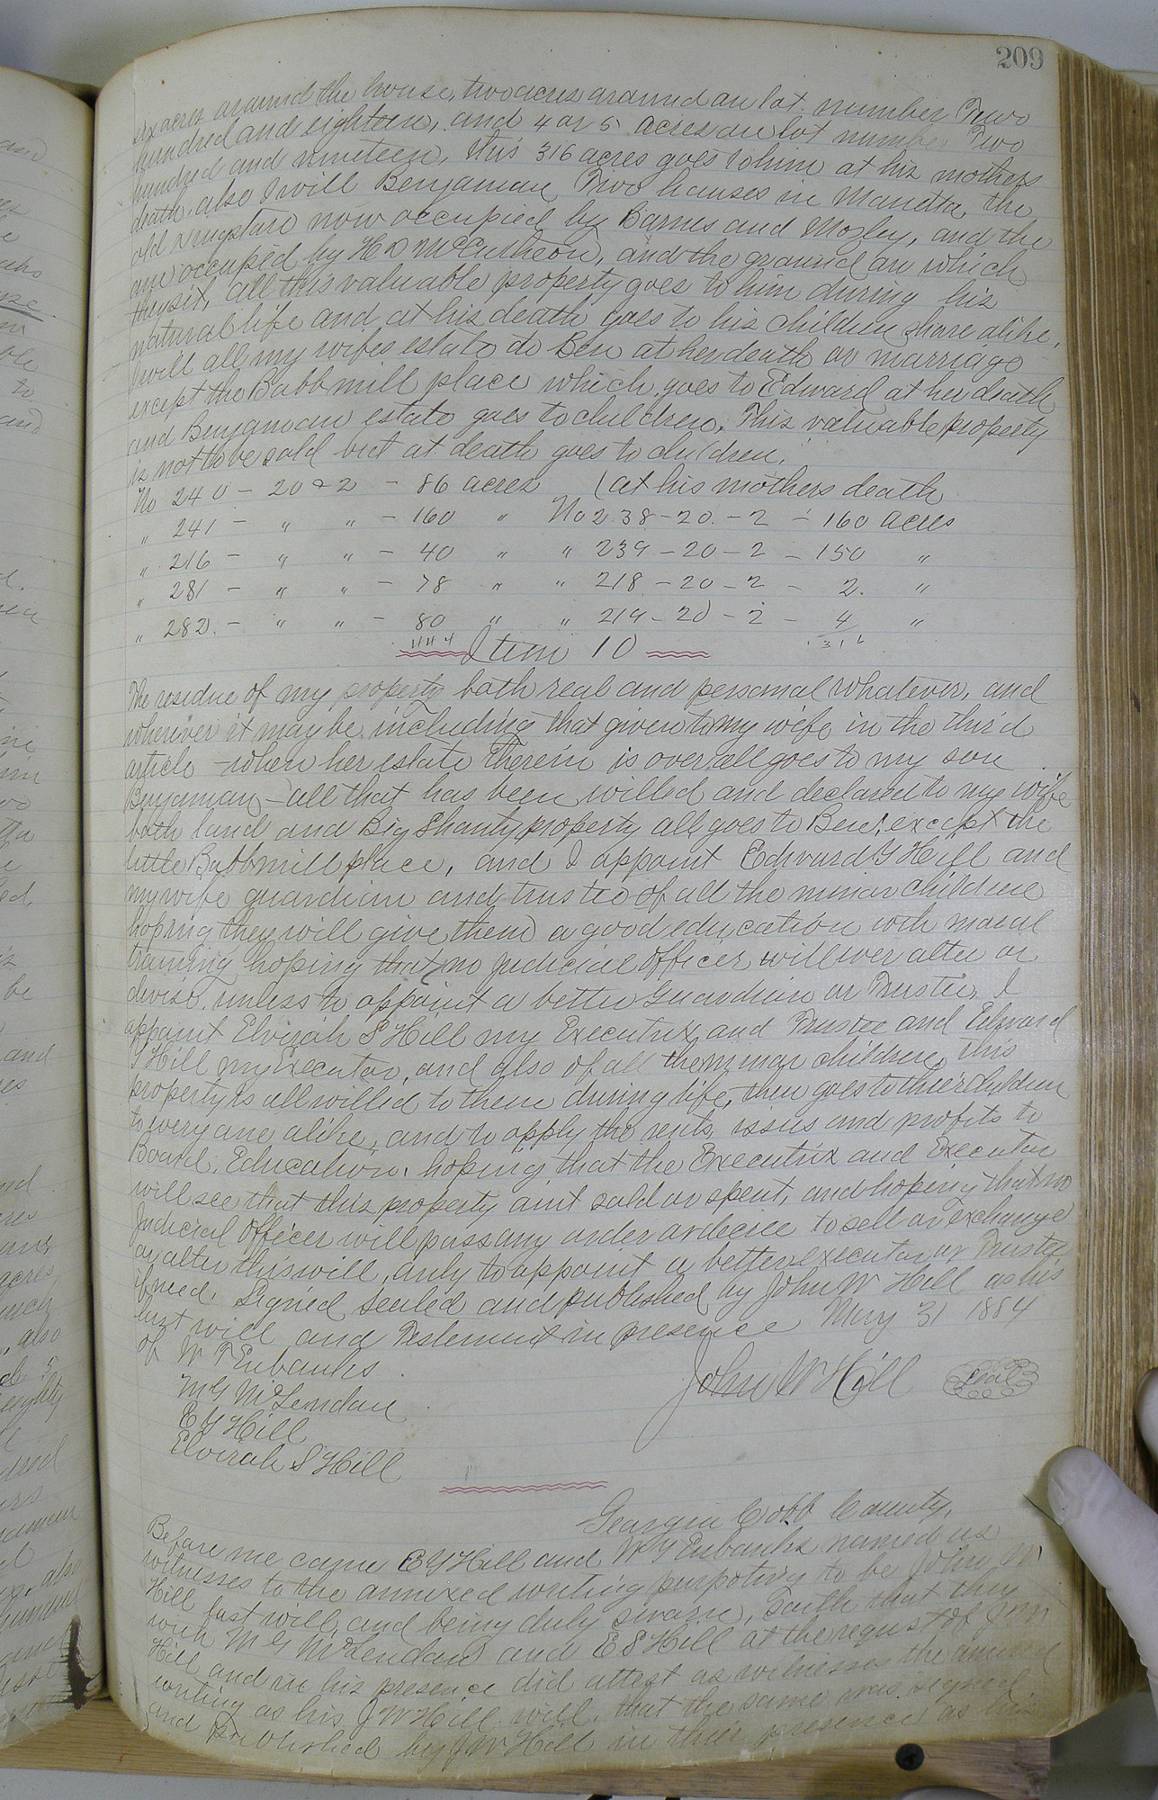 209
six acres around the house, two acres around on lot number Two
hundred and eighteen, and 4 or 5 acres on lot number Two
hundred and nineteen, this 316 acres goes to him at his mothers
death also I will Benjaman Two houses in Manetta, the
old now occupied by Barnes and Mozley, and the
one occupied by H D McCutcheon, and the ground on which
they sit, all this valuable property goes to him during his
natural life and at his death goes to his children share alike,
I will all my wifes estate to Ben at her death or marriage
except the Babb mill place which goes to Edward at her death
and Benjaman estate goes to children. This valuable property
is not to be sold but at death goes to children.
No 240 - 20 & 2 - 86 acres (at his mothers death
" 241 - " " - 160 " No 238 - 20 - 2 - 160 acres
" 216 - " " - 40 " " 239 - 20 - 2 - 150 "
" 281 - " " - 78 " " 218 - 20 - 2 - 2. "
" 282. - " " - 80 " " 219 - 20 - 2 - 4 "
444 Item 10 316
The residue of my property both real and personal whatever, and
wherever it may be including that given to my wife in the third
article - when her estate therein is over all goes to my son
Benjaman - all that has been willed and declared to my wife
both land and Big Shanty property all goes to Ben; except the
little Babb mill place, and I appoint Edward Y Hill and
my wife guardian and trustee of all the minor children
hoping they will give them a good education with moral
training hoping that no Judicial Officer will ever alter or
devise, unless to appoint a better Guardian or Trustee, I
appoint Elvirah S Hill my Executrix and Trustee and Edward
Y Hill my Executor, and also of all the minor children, this
property is all willed to them during life, then goes to their children
to every one alike, and to apply the rents, issues and profits to
Board, Education, hoping that the Executrix and Executor
will see that this property aint sold or spent, and hoping that no
Judicial Officer will pass any order or decree to sell or exchange
or alter this will, only to appoint a better executor or Trustee
if need. Signed Sealed and published by John W Hill as his
last will and Testement in presence May 31 1884
of W T Eubanks
John W Hill Seal
M G McLendon
E Y Hill
Elvirah S Hill
Georgia Cobb County,
Before me came E Y Hill and W T Eubanks named as
witnesses to the annexed writing purpoting to be John W
Hill last will, and being duly sworn, saith that they
with M G McLendon and E S Hill at the request of John
Hill and in his presence did attest as witnesses the annexed
writing as his J W Hill will, that the same was signed
and published by J W Hill in their presence as his